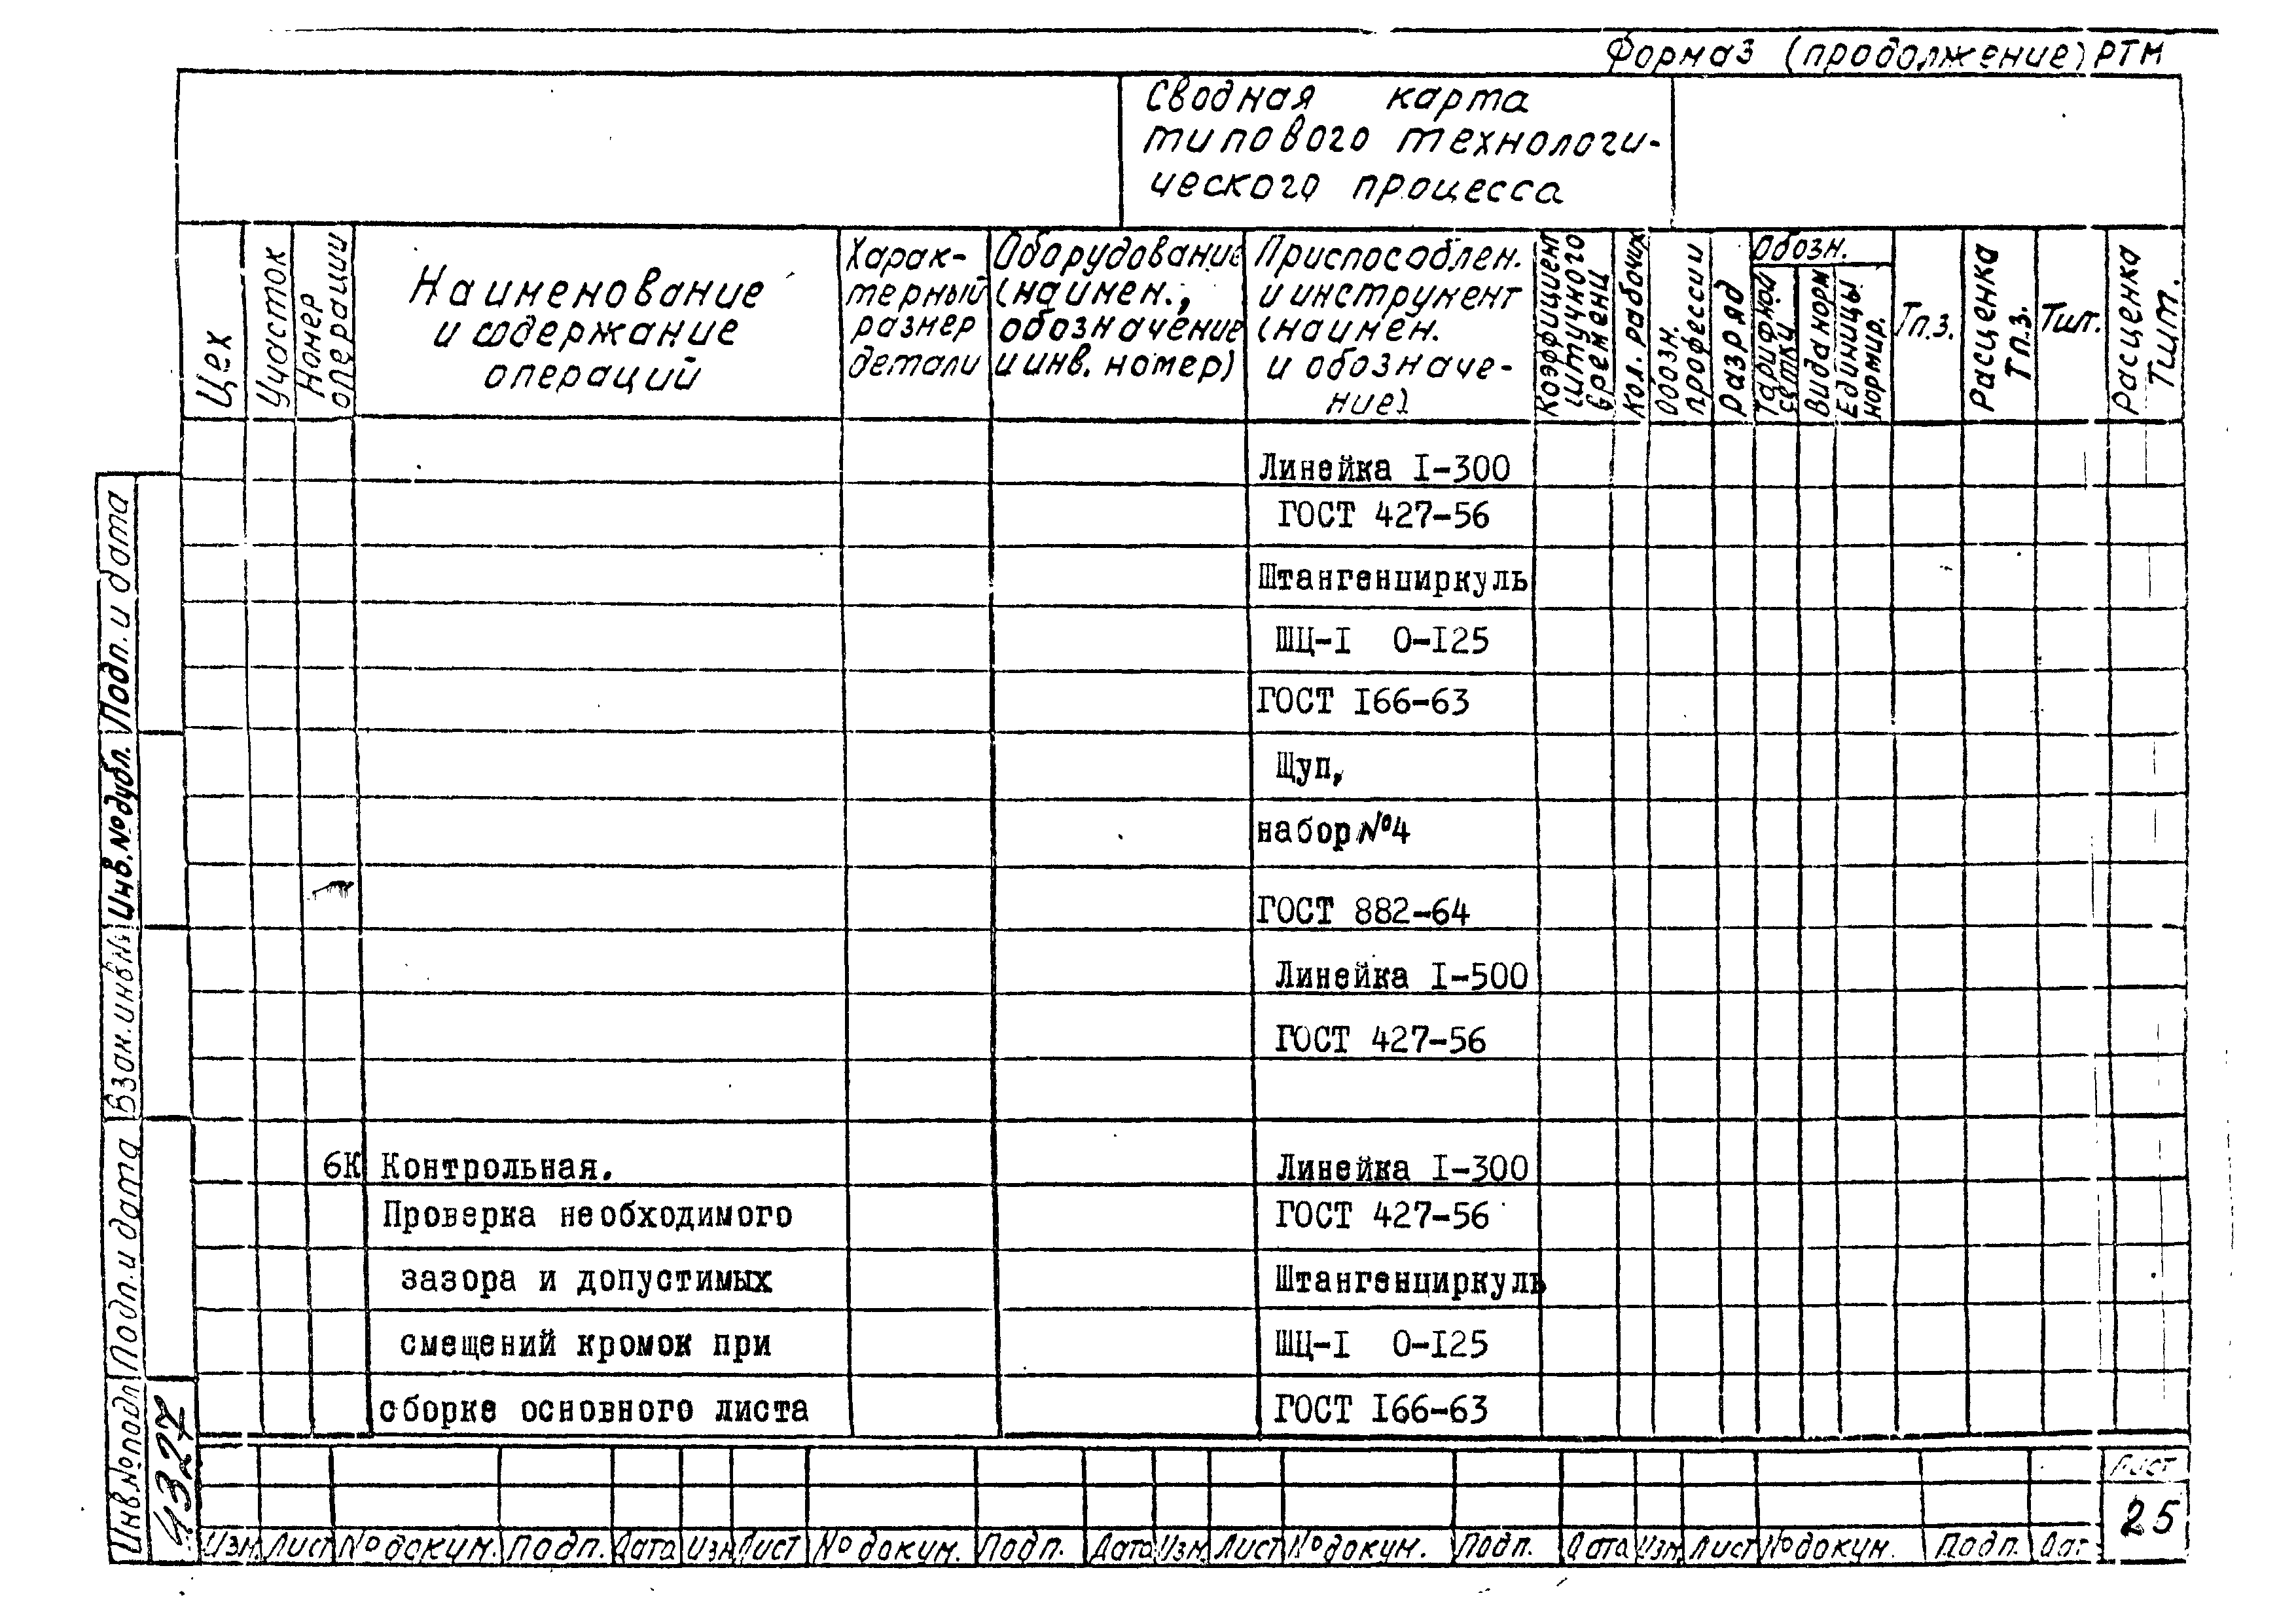 Форма 3 (продолжение) РТМ
Сводная карта
типового технологи-
ческого процесса
Цех
Участок
Номер
операции
Наименование
и содержание
операций
Харак-
терный
размер
детали
Оборудование
(наимен.,
обозначение
и инв. номер)
Приспособлен.
и инструмент
(наимен.
и обозначе-
ние)
Коэффициент
штучного
времени
Кол. рабочих
Обозн.
профессии
Разряд
Обозн.
Тарифной
сетки
Вида норм
Единицы
нормир.
Тп.з.
Расценка
Тп.з.
Тшт.
Расценка
Тшт.
Линейка I-300
ГОСТ 427-56
Штангенциркуль
ШЦ-I 0-I25
ГОСТ I66-63
Щуп,
набор №4
ГОСТ 882-64
Линейка I-500
ГОСТ 427-56
6К Контрольная. Линейка I-300
Проверка необходимого ГОСТ 427-56
зазора и допустимых Штангенциркуль
смещений кромок при ШЦ-I 0-I25
сборке основного листа ГОСТ I66-63
Подп. и дата
Инв. № дубл.
Взам. инв. №
Подп. и дата
Инв. № подл.
4327
Изм. Лист № докум. Подп. Дата Изм. Лист № докум. Подп. Дата Изм. Лист № докум. Подп. Дата Изм. Лист № докум. Подп. Дат
Лист
25